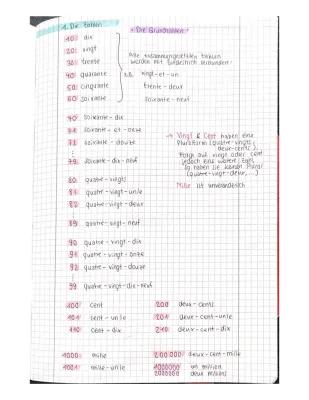 1. Die Zahlen
• Die Grundzahlen
10: dix
20: vingt
30: trente
40: quarante
50: cinquante
60: soixante
Alle zusammengesetzten Zahlen
werden mit Bindestrich verbunden!
z.B. vingt-et-un
trente-deux
soixante-neuf
70: soixante-dix
71 soixante-et-onze
72 soixante-douze
79 soixante-dix-neuf
→ Vingt & Cent haben eine
Pluralform (quatre-vingts,
deux-cents).
Folgt auf vingt oder cent
jedoch eine weitere Zahl,
so haben sie keinen Plural
(quatre-vingt-deux,...)
Mille ist unveränderlich
80 quatre-vingts
81 quatre-vingt-un/e
82 quatre-vingt-deux
89 quatre-vingt-neuf
90 quatre-vingt-dix
91 quatre-vingt-onze
92 quatre-vingt-douze
99 quatre-vingt-dix-neuf
100: cent 200 deux-cents
101 cent-un/e 201 deux-cent-un/e
110 cent-dix 210 deux-cent-dix
1000: mille 200'000 deux-cent-mille
1001: mille-un/e 1000000 un million
2000000 deux millions